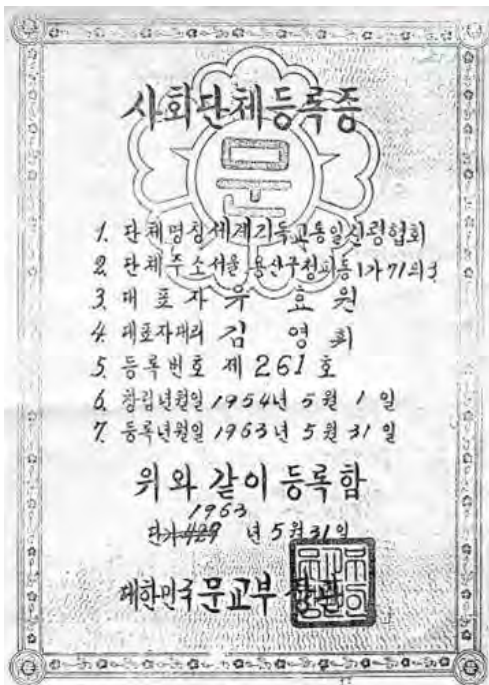 사회단체등록증
문
1. 단체명칭 세계기독교통일신령협회
2. 단체주소 서울 용산구 청파동 1가 71의 3
3. 대표자 유효원
4. 대표자대리 김영휘
5. 등록번호 제 261 호
6. 창립년월일 1954년 5월 1일
7. 등록년월일 1963년 5월 31일
위와 같이 등록함
1963
단기 429 년 5월 31일
대한민국 문교부 장관